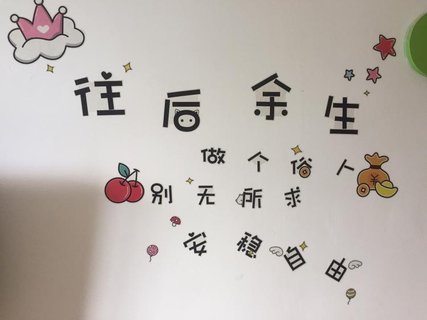 往后余生
做个俗人
别无所求
安稳自由